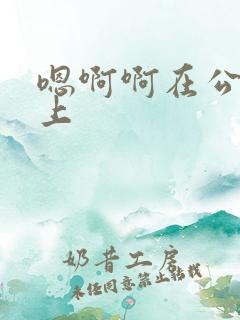 嗯啊啊在公
上
奶昔工房
未经同意禁止转载